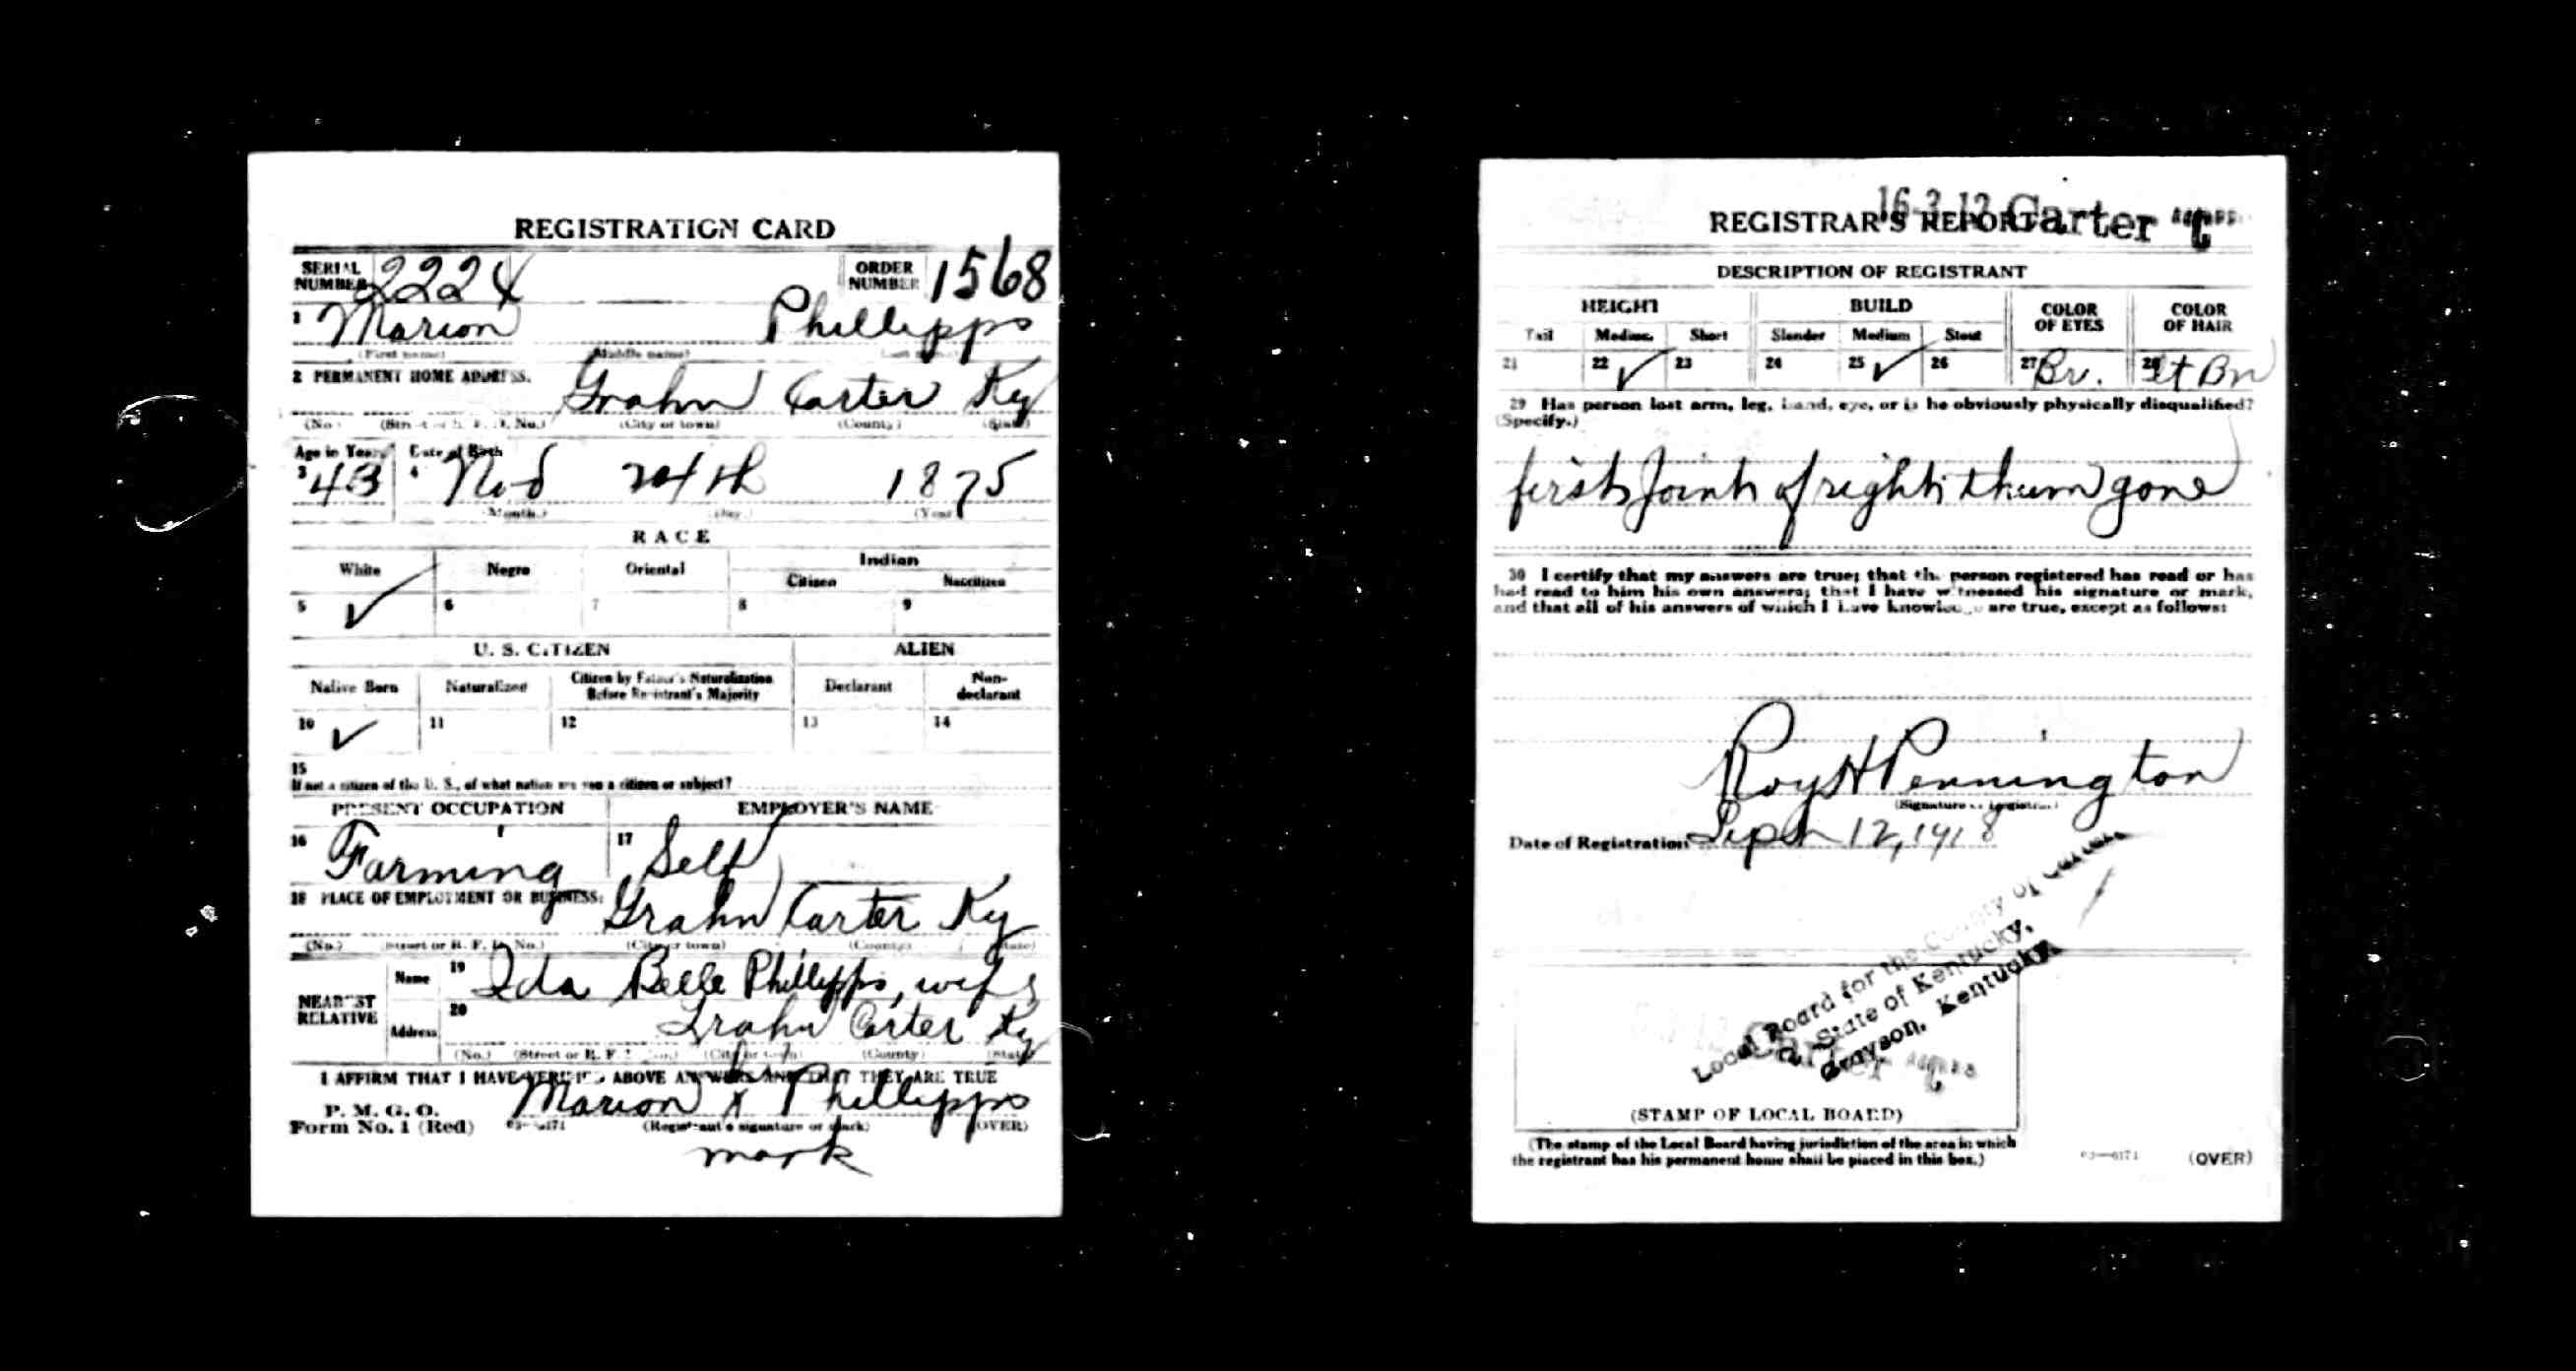 REGISTRATION CARD
SERIAL NUMBER 2224 ORDER NUMBER 1568
1 Marion Phillipps
(First name) (Middle name) (Last name)
2 PERMANENT HOME ADDRESS. Grahn Carter Ky
(No.) (Street or R. F. D. No.) (City or town) (County) (State)
Age in Years Date of Birth
3 43 4 Nov 24th 1875
(Month.) (Day.) (Year.)
RACE
White Negro Oriental Indian
Citizen Noncitizen
5 ✓ 6 7 8 9
U. S. CITIZEN ALIEN
Native Born Naturalized Citizen by Father's Naturalization Before Registrant's Majority Declarant Non-declarant
10 ✓ 11 12 13 14
15
If not a citizen of the U. S., of what nation are you a citizen or subject?
PRESENT OCCUPATION EMPLOYER'S NAME
16 Farming 17 Self
18 PLACE OF EMPLOYMENT OR BUSINESS: Grahn Carter Ky
(No.) (Street or R. F. D. No.) (City or town) (County) (State)
NEAREST RELATIVE Name 19 Ida Belle Phillipps, wife
Address 20 Grahn Carter Ky
(No.) (Street or R. F. D. No.) (City or town) (County) (State)
I AFFIRM THAT I HAVE VERIFIED ABOVE ANSWERS AND THAT THEY ARE TRUE
P. M. G. O.
Form No. 1 (Red) Marion X Phillipps
(Registrant's signature or mark) (OVER)
mark
REGISTRAR'S REPORT
16-3-12 Carter C
DESCRIPTION OF REGISTRANT
HEIGHT BUILD COLOR OF EYES COLOR OF HAIR
Tall Medium Short Slender Medium Stout
21 22 ✓ 23 24 25 ✓ 26 27 Br. 28 Lt Bn
29 Has person lost arm, leg, hand, eye, or is he obviously physically disqualified?
(Specify.)
first Joint of right thum gone
30 I certify that my answers are true; that the person registered has read or has
had read to him his own answers; that I have witnessed his signature or mark,
and that all of his answers of which I have knowledge are true, except as follows:
Roy H Pennington
(Signature of Registrar)
Date of Registration Sept 12, 1918
Local Board for the County of Carter
State of Kentucky,
Grayson, Kentucky
(STAMP OF LOCAL BOARD)
(The stamp of the Local Board having jurisdiction of the area in which
the registrant has his permanent home shall be placed in this box.)
03—6171 (OVER)